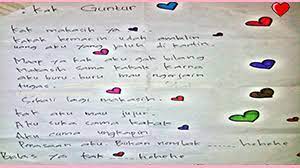 Kak Guntur
Kak makasih ya
kakak kemarin udah ambilin
uang aku yang jatuh di kantin.
Maap ya kak aku gak bilang
makasih sama kakak karna
aku buru-buru mau ngerjain
tugas.
Sekali lagi makasih.
Kak aku mau jujur.
Aku suka sama kakak
Aku cuma ungkapin
Perasaan aku. Bukan nembak ... hehehe
Balas ya kak .... hehehe